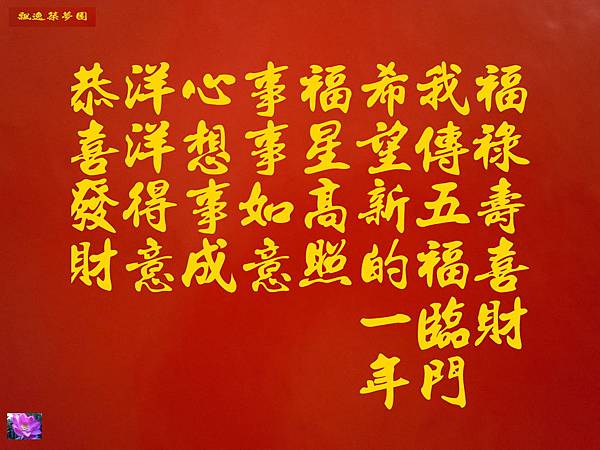 飄逸築夢園
福祿壽喜財
我傳五福臨門
希望新的一年
福星高照
事事如意
心想事成
洋洋得意
恭喜發財